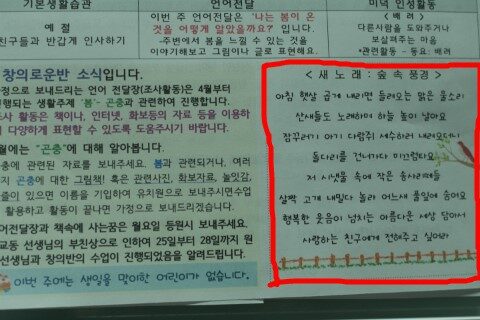 기본생활습관
언어전달
미덕 인성활동
예절
친구들과 반갑게 인사하기
이번 주 언어전달은 '나는 봄이 온
것을 어떻게 알았을까요?' 입니다.
-주변에서 봄을 느낄 수 있는 것을
이야기해보고 그림이나 글로 표현해요.
< 배려 >
다른사람을 도와주거나
보살펴주는 마음
•관련활동 - 동요: 배려
창의로운반 소식입니다.
가정으로 보내드리는 언어 전달장(조사활동)은 4월부터
진행되는 생활주제 '봄'- 곤충과 관련하여 진행합니다.
조사 활동은 책이나, 인터넷, 화보등의 자료 등을 이용하
다양하게 표현할 수 있도록 도움주시기 바랍니다.
월에는 "곤충"에 대해 알아봅니다.
곤충에 관련된 자료를 보내주세요. 봄과 관련되거나, 여러
지 곤충에 대한 그림책! 혹은 관련사진, 화보자료, 놀잇감,
들이 있으면 이름을 기입하여 유치원으로 보내주시면수업
활용하고 활동이 끝나면 가정으로 보내드리겠습니다.
언어전달장과 책속에 사는꿈은 월요일 등원시 보내주세요.
선생님의 부친상으로 인하여 25일부터 28일까지 원
선생님과 창의반의 수업이 진행되었음을 알려드립니다.
이번 주에는 생일을 맞이한 어린이가 없습니다.
< 새 노래 : 숲 속 풍경 >
아침 햇살 곱게 내리면 들려오는 맑은 물소리
산새들도 노래하며 하늘 높이 날아요
잠꾸러기 아기 다람쥐 세수하러 내려오더니
돌다리를 건너가다 미끄럼다요
저 시냇물 속에 작은 송사리떼들
살짝 고개 내밀다 놀라 어느새 풀잎에 숨어요
행복한 웃음이 넘치는 아름다운 세상 담아서
사랑하는 친구에게 전해주고 싶어라